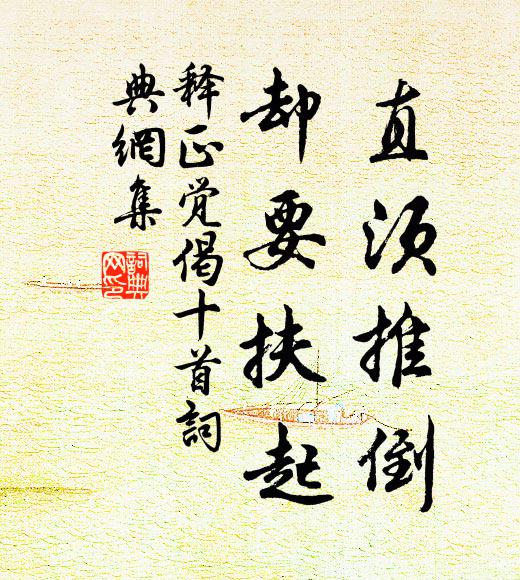 直须推倒
却要扶起
释正觉偈十首詞
典網集
詞典
网印